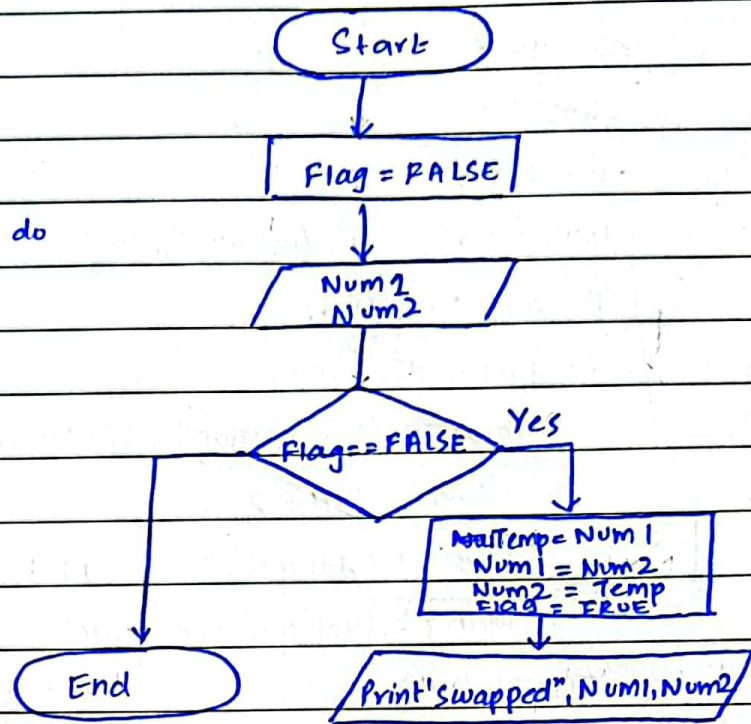 Start
Flag = FALSE
do
Num1
Num2
Flag==FALSE
Yes
Temp = Num1
Num1 = Num2
Num2 = Temp
Flag = TRUE
End
Print'swapped", Num1, Num2